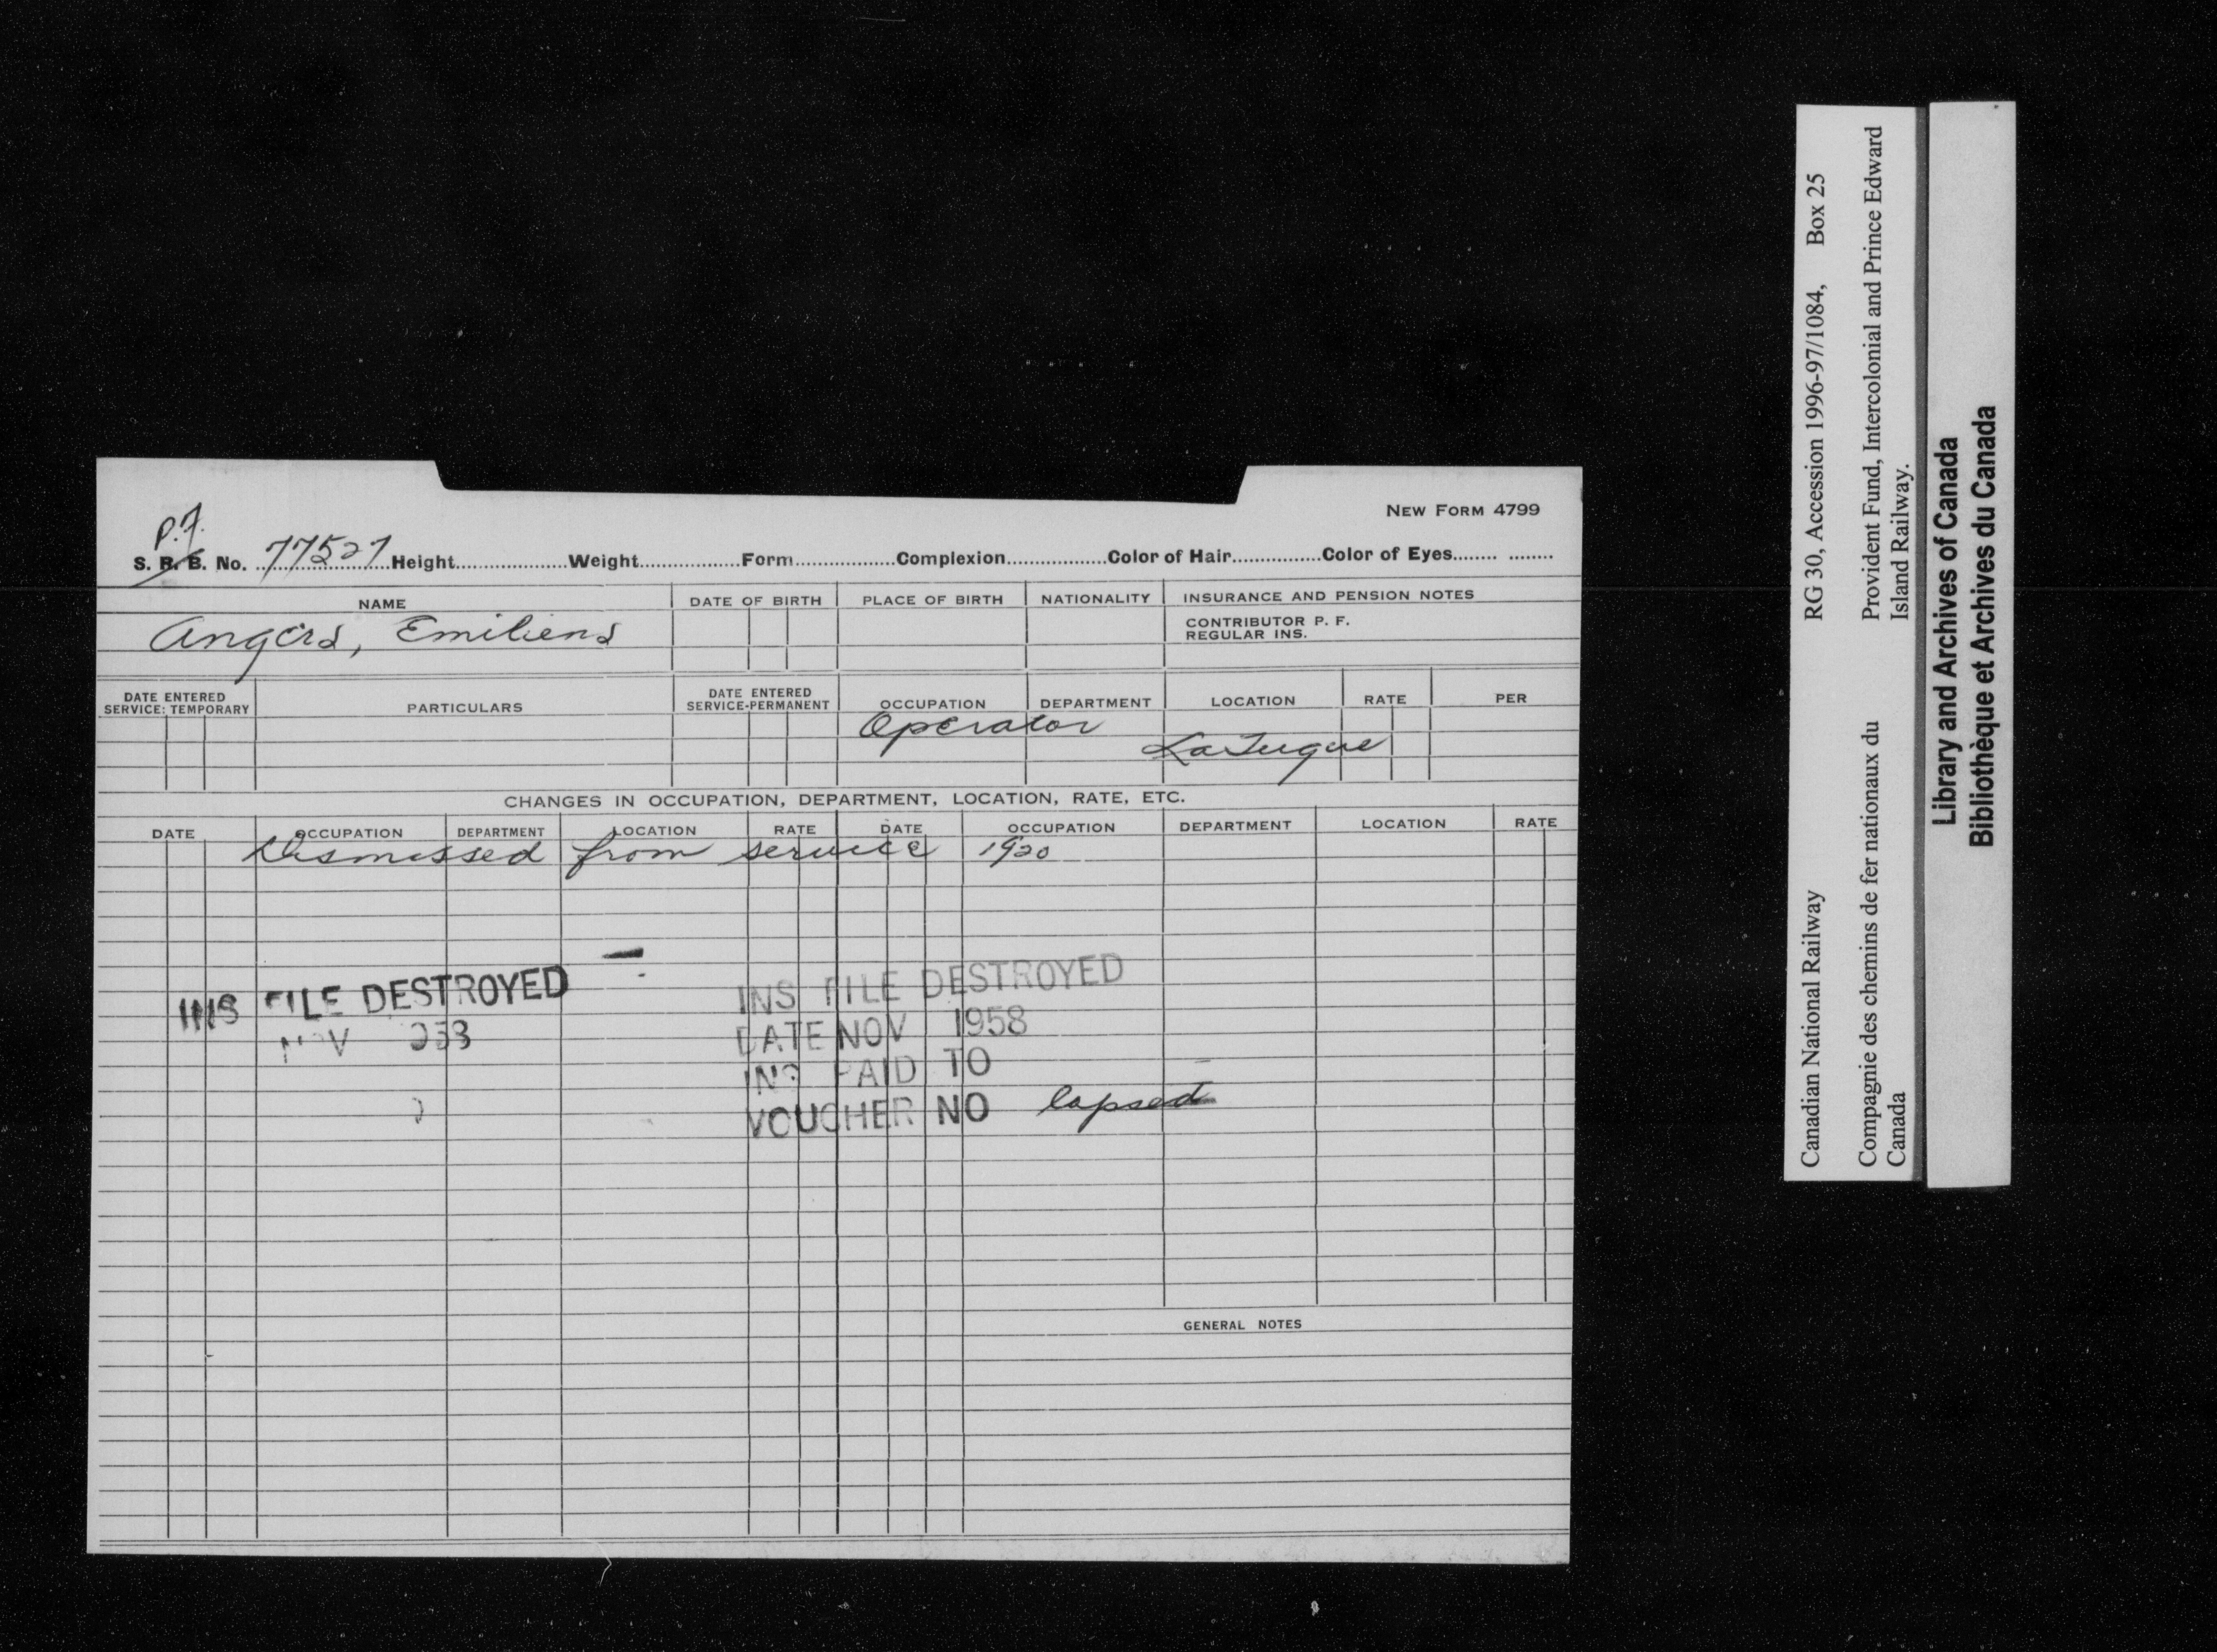 NEW FORM 4799
P.F.
S. R. B. No. 77527 Height Weight Form Complexion Color of Hair Color of Eyes
NAME DATE OF BIRTH PLACE OF BIRTH NATIONALITY INSURANCE AND PENSION NOTES
Angers, Emiliens
CONTRIBUTOR P. F.
REGULAR INS.
DATE ENTERED SERVICE: TEMPORARY PARTICULARS DATE ENTERED SERVICE-PERMANENT OCCUPATION DEPARTMENT LOCATION RATE PER
Operator
LaTuque
CHANGES IN OCCUPATION, DEPARTMENT, LOCATION, RATE, ETC.
DATE OCCUPATION DEPARTMENT LOCATION RATE DATE OCCUPATION DEPARTMENT LOCATION RATE
Dismissed from service 1920
INS FILE DESTROYED
NOV
INS FILE DESTROYED
DATE NOV 1958
INS PAID TO
VOUCHER NO lapsed
GENERAL NOTES
Canadian National Railway RG 30, Accession 1996-97/1084, Box 25
Compagnie des chemins de fer nationaux du Provident Fund, Intercolonial and Prince Edward
Canada Island Railway.
Library and Archives of Canada
Bibliothèque et Archives du Canada